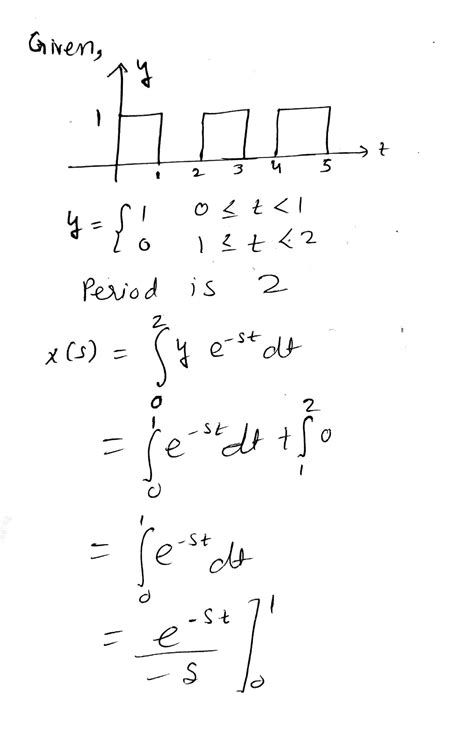 Given,
y
1
1 2 3 4 5 t
y = { 1 0 ≤ t < 1
0 1 ≤ t < 2
Period is 2
x(s) = ∫₀² y e^{-st} dt
= ∫₀¹ e^{-st} dt + ∫₁² 0
= ∫₀¹ e^{-st} dt
= e^{-st} / -s ]₀¹